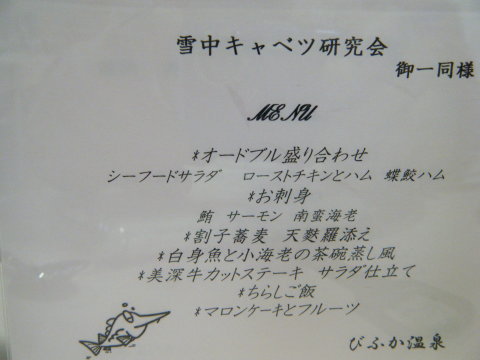 雪中キャベツ研究会
御一同様
MENU
*オードブル盛り合わせ
シーフードサラダ ローストチキンとハム 蝶鮫ハム
*お刺身
鮪 サーモン 南蛮海老
*割子蕎麦 天麩羅添え
*白身魚と小海老の茶碗蒸し風
*美深牛カットステーキ サラダ仕立て
*ちらしご飯
*マロンケーキとフルーツ
びふか温泉